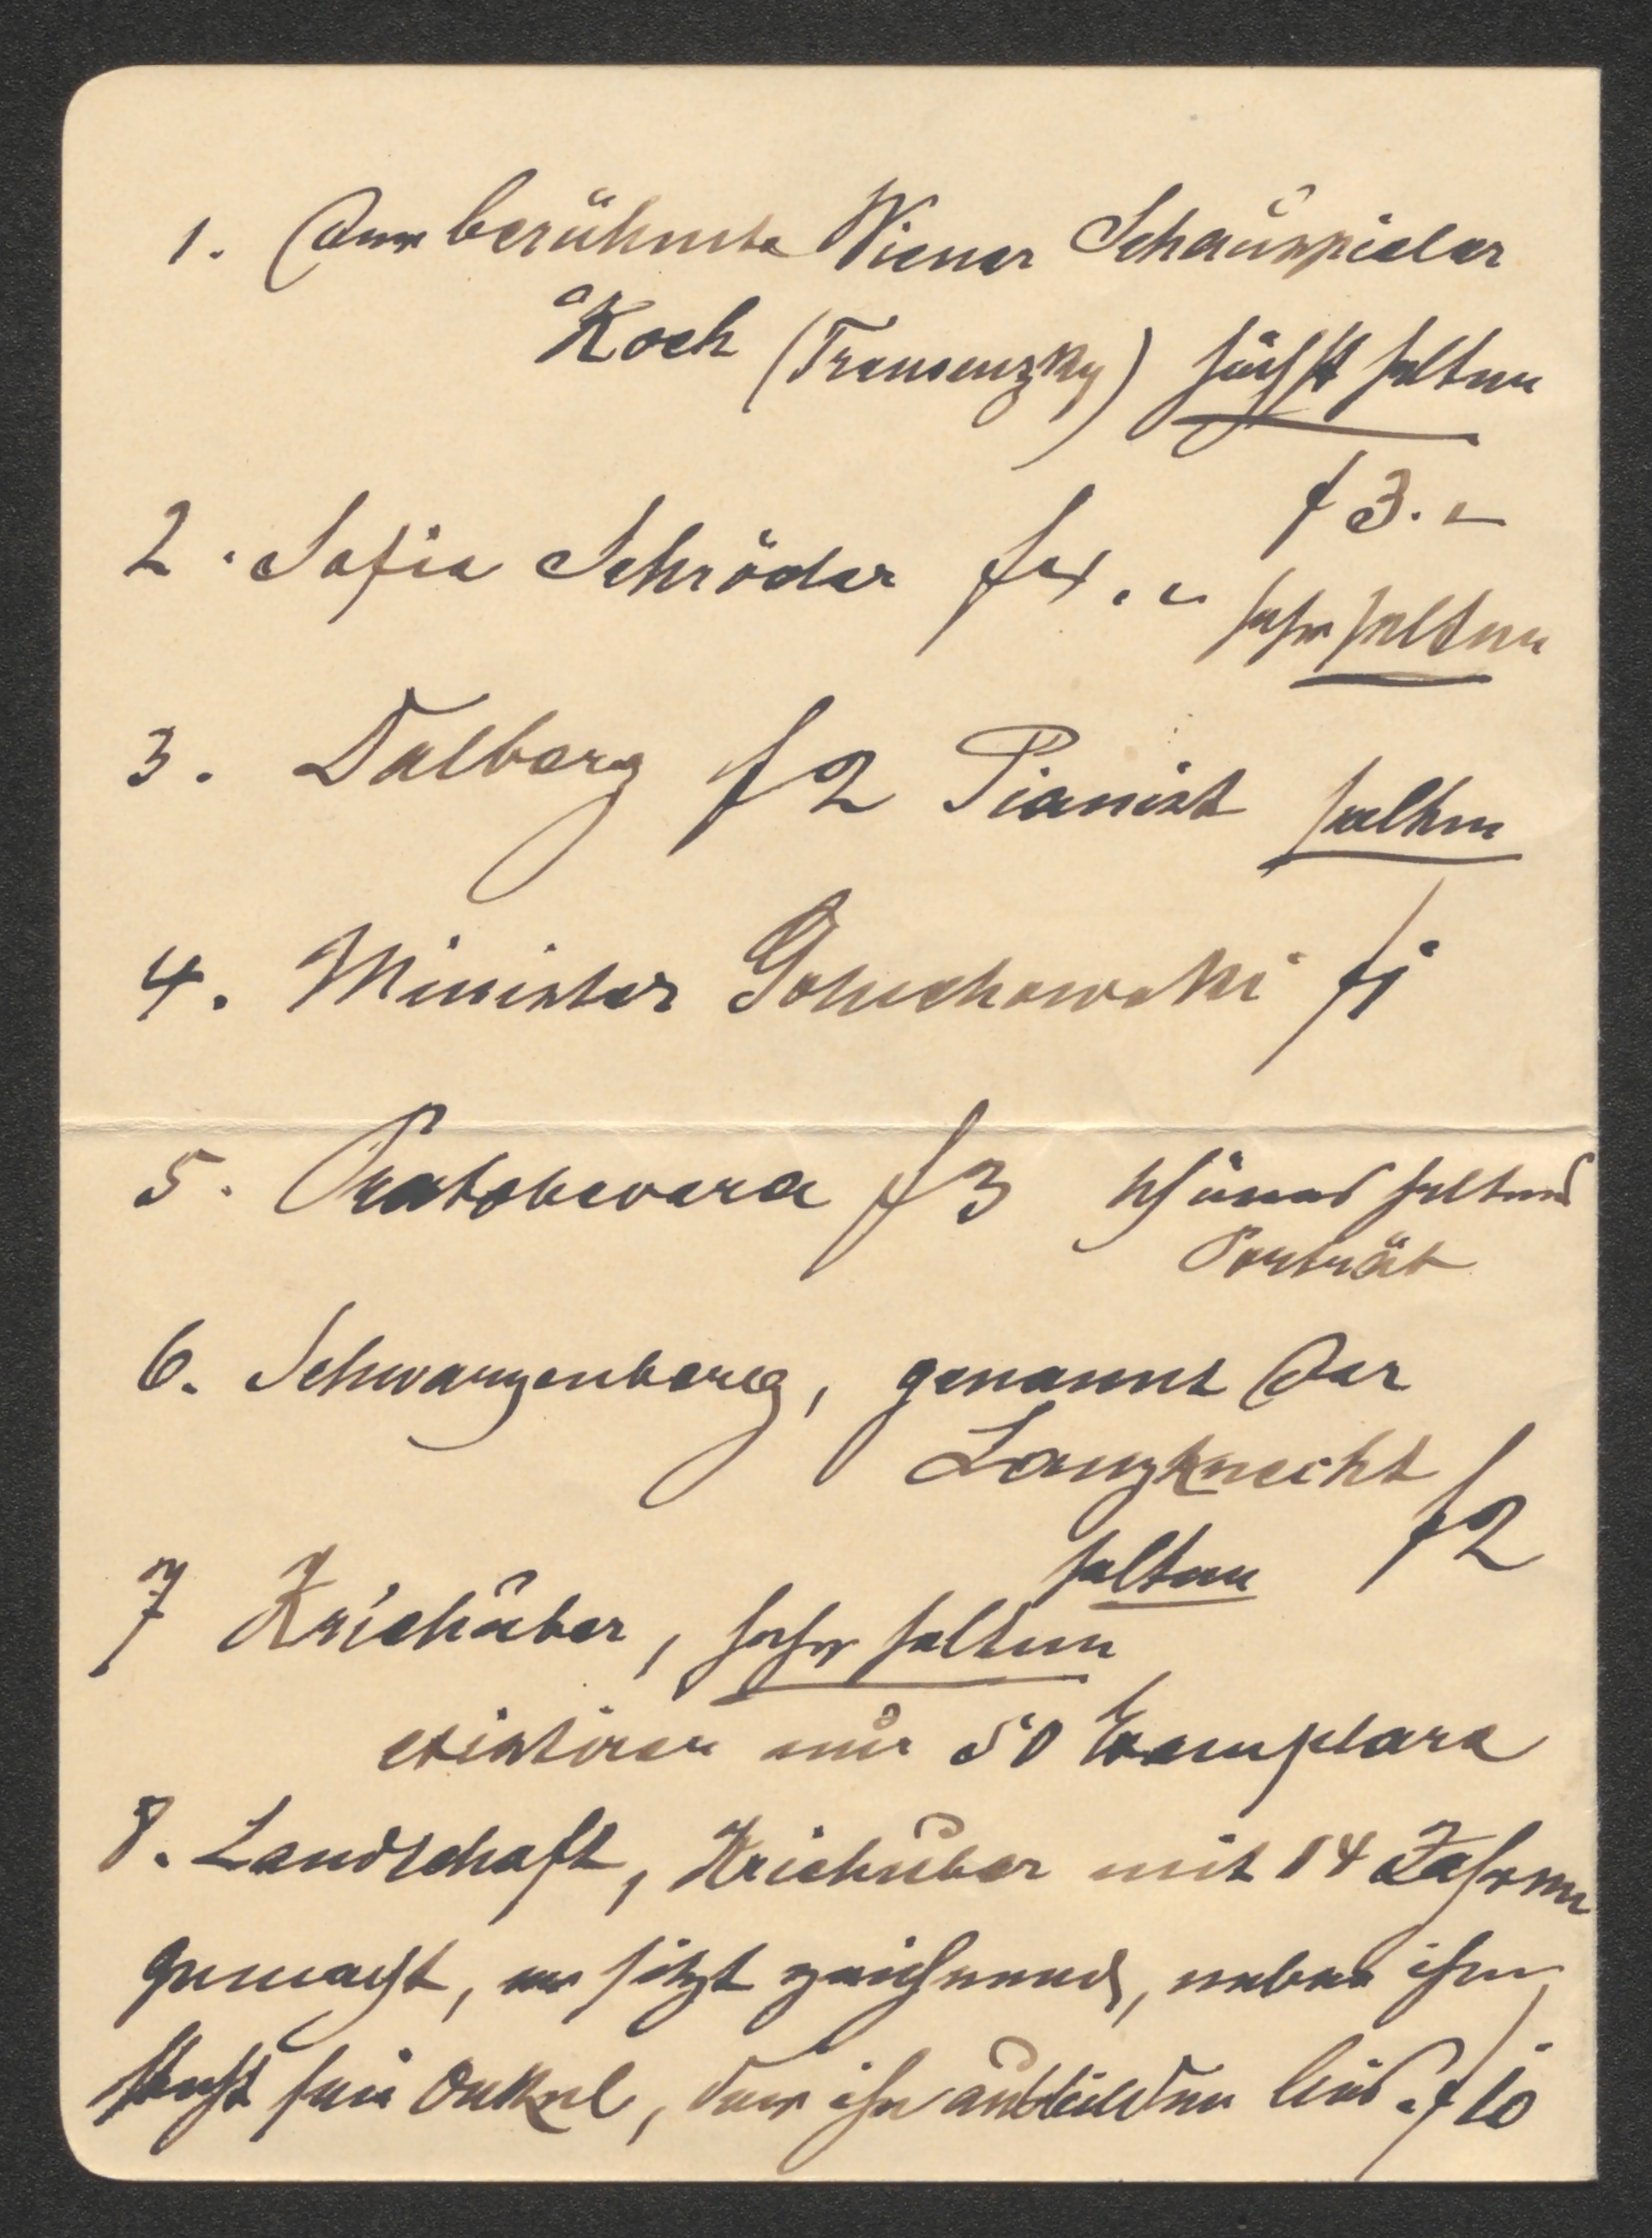 1. Der berühmte Wiener Schauspieler
Koch (Transenzky) höchst selten
f 3.–
2. Sofie Schröder f 1.–
sehr selten
3. Dalberg f 2 Pianist selten
4. Minister Goluchowski f 1
5. Pratobevera f 3 schönes seltnes
Porträt
6. Schwarzenberg, genannt der
Lanzknecht
selten f 2
7 Kriehuber, sehr selten
existiren nur 50 Exemplare
8. Landschaft, Kriehuber mit 14 Jahren
gemacht, er sitzt zeichnend, neben ihm
steht sein Onkel, der ihn ausbilden ließ. f 10